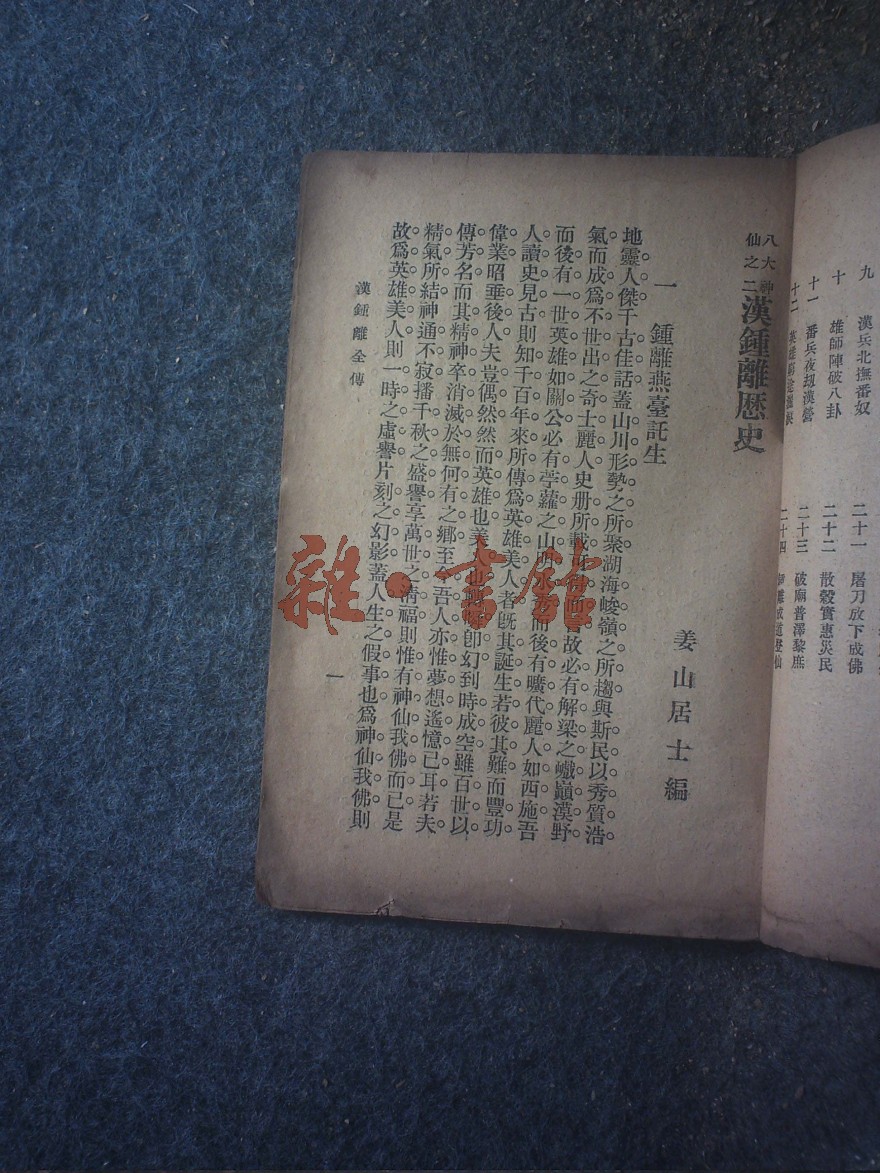 九　漢兵北撫番奴
十　雄師陣破八卦
十一　番兵夜刼漢營
十二
二十一　屠刀放下成佛
二十二　散穀實惠災民
二十三　破廟普澤黎庶
二十四　成道登仙
八大神仙之二漢鍾離歷史
姜山居士編
一　鍾離燕臺託生
地靈人傑千古佳話蓋山川形勢之所聚湖海峻嶺之所趨與斯民以秀質浩
氣而成爲不世出之奇士麗人史册所載故必有解梁之巇巔漠野
而後有一世英雄如關公必有苧蘿之山明水秀而後有曠代麗人如西施吾
人讀史見古則知千百年來所傳爲英雄美人者旣其誕生若彼其難而豐功
偉業昭垂後人夫豈偶然然而英雄也美人也轉瞬卽幻到時成空雖百世以
傳芳名而其精神卒消滅於無何有之鄉至今吾人亦惟夢想遙憶已耳若夫
精氣所結神通不寂播千秋之盛譽享萬世之清福則惟有神仙我佛而已是
故爲英雄美人則一時之虛譽片刻之幻影蓋人生之假事也爲神仙我佛則
漢鍾離全傳
一
雜·書館